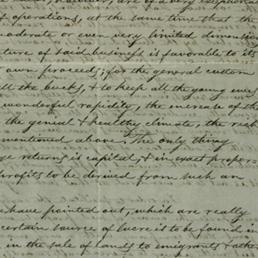 of operations, at the same time that the
moderate or even very limited dimensions
ture of said business is favorable to it
own proceed; for the general custom
all the bucks, & to keep all the young ewes
wonderful rapidity, the increase of the
the genial & healthy climate, the rich
mentioned above. The only thing
ge returns is capital, & in exact propor
profits to be derived from such an
have pointed out, which are really
certain source of lucre is to be found in
in the sale of lands to emigrants & othe